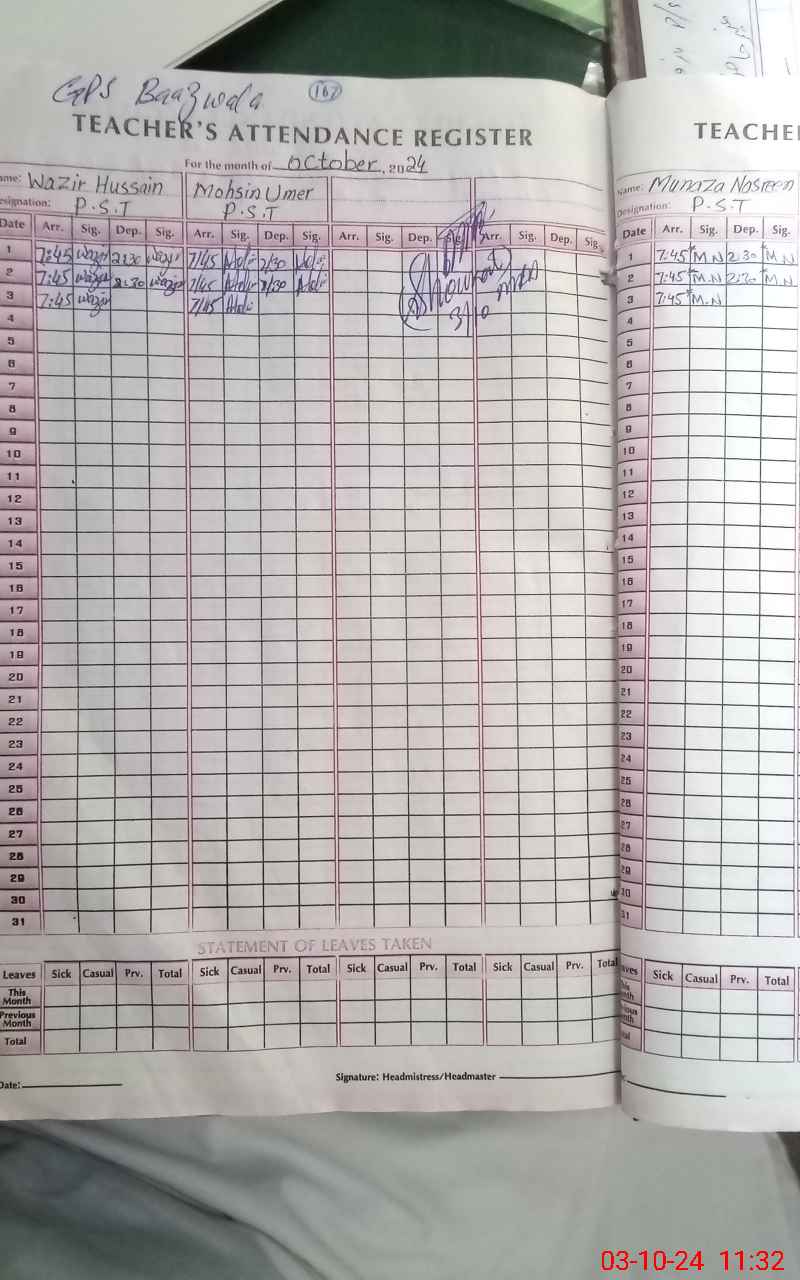 GPS Baazwala 167
TEACHER'S ATTENDANCE REGISTER
For the month of October, 2024
ame: Wazir Hussain Mohsin Umer
esignation: P.S.T P.S.T
Date Arr. Sig. Dep. Sig. Arr. Sig. Dep. Sig. Arr. Sig. Dep. Sig. Arr. Sig. Dep. Sig.
1 7:45 Wazir 2:30 Wazir 7/45 2/30
2 7:45 Wazir 2:30 Wazir 7/45 2/30
3 7:45 Wazir 7/45
4
5
6
7
8
9
10
11
12
13
14
15
16
17
18
19
20
21
22
23
24
25
26
27
28
29
30
31
STATEMENT OF LEAVES TAKEN
Leaves Sick Casual Prv. Total Sick Casual Prv. Total Sick Casual Prv. Total Sick Casual Prv. Total
This Month
Previous Month
Total
Date:
Signature: Headmistress/Headmaster
TEACHE
Name: Munaza Nasreen
Designation: P.S.T
Date Arr. Sig. Dep. Sig.
1 7:45 M.N 2:30 M.N
2 7:45 M.N 2:30 M.N
3 7:45 M.N
4
5
6
7
8
9
10
11
12
13
14
15
16
17
18
19
20
21
22
23
24
25
26
27
28
29
30
31
aves Sick Casual Prv. Total
03-10-24 11:32